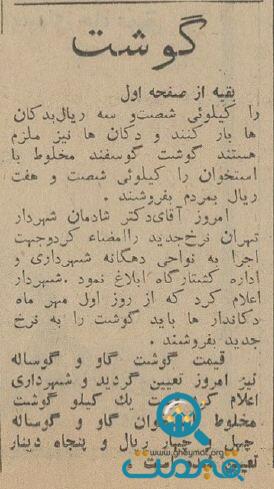 گوشت
بقیه از صفحه اول
را کیلوئی شصت و سه ریال بدکان
ها بار کنند و دکان ها نیز ملزم
هستند گوشت گوسفند مخلوط با
استخوان را کیلوئی شصت و هفت
ریال بمردم بفروشند .
امروز آقای دکتر شادمان شهردار
تهران نرخ جدید را امضاء کرد و جهت
اجرا به نواحی دهگانه شهرداری و
اداره کشتارگاه ابلاغ نمود . شهردار
اعلام کرد که از روز اول مهر ماه
دکاندار ها باید گوشت را به نرخ
جدید بفروشند .
قیمت گوشت گاو و گوساله
نیز امروز تعیین گردید و شهرداری
اعلام یک کیلو گوشت
مخلوط گاو و گوساله
چهل و چهار ریال و پنجاه دینار
تعیین است .
www.gheymat.org